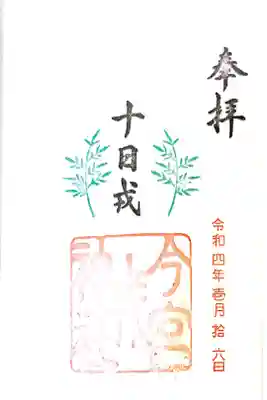 奉拝
十日戎
今宮
令和四年壱月拾六日